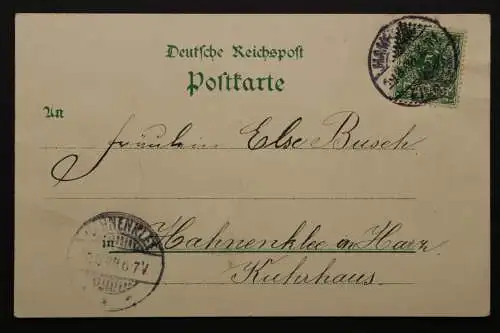 Deutsche Reichspost
Postkarte
An
Fräulein Else Busch
in Hahnenklee a/Harz
Kuhrhaus.
HAHNENKLEE